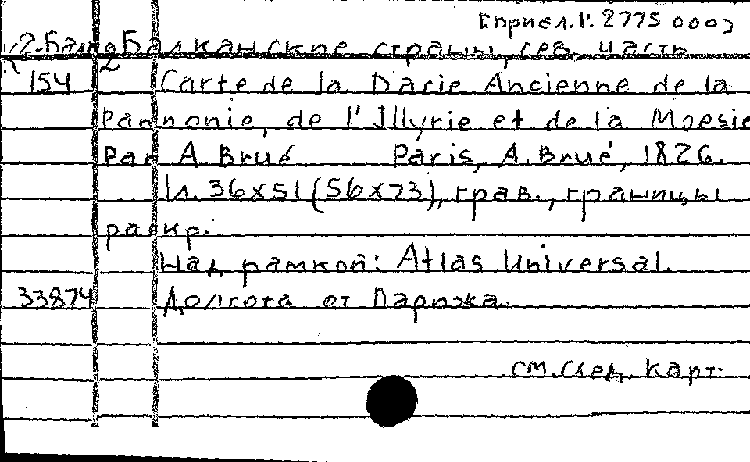 2775 000
2-Балк Балканские страны, сев. часть
154 2 Carte de la Dacie Ancienne de la
Pannonie, de l'Illyrie et de la Moesie
Par A. Brué Paris, A. Brué, 1826.
1л. 36x51 (56x73), грав., границы
раскр.
Над рамкой: Atlas Universal.
33874 Долгота от Парижа.
см. след. карт.